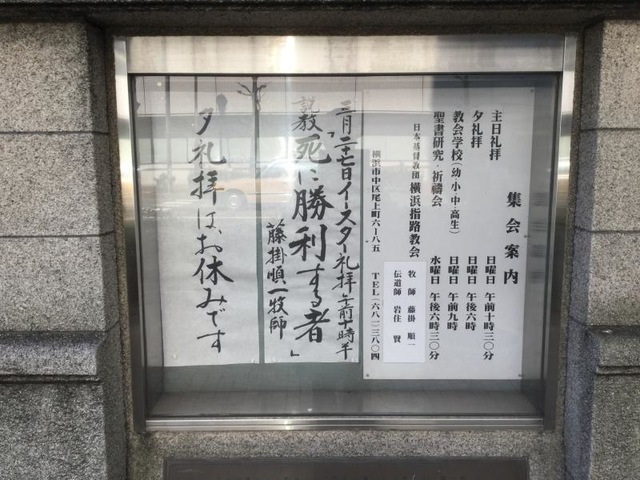 集会案内
主日礼拝 日曜日 午前十時三〇分
夕礼拝 日曜日 午後六時
教会学校(幼小中高生) 日曜日 午前九時
聖書研究・祈禱会 水曜日 午後六時三〇分
日本基督教団 横浜指路教会
牧師 藤掛順一
伝道師 岩住賢
横浜市中区尾上町六ー八五
TEL(六八一)三八〇四
三月二十七日イースター礼拝午前十時半
説教「死に勝利する者」
藤掛順一牧師
夕礼拝は、お休みです